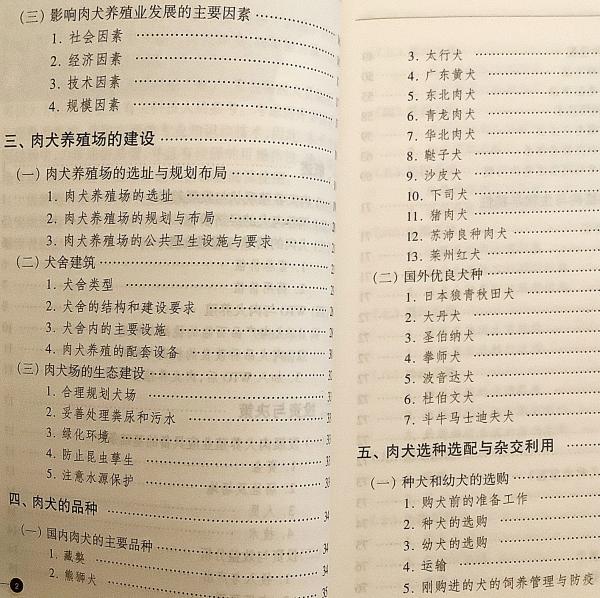 (三) 影响肉犬养殖业发展的主要因素
1. 社会因素
2. 经济因素
3. 技术因素
4. 规模因素
三、肉犬养殖场的建设
(一) 肉犬养殖场的选址与规划布局
1. 肉犬养殖场的选址
2. 肉犬养殖场的规划与布局
3. 肉犬养殖场的公共卫生设施与要求
(二) 犬舍建筑
1. 犬舍类型
2. 犬舍的结构和建设要求
3. 犬舍内的主要设施
4. 肉犬养殖的配套设备
(三) 肉犬场的生态建设
1. 合理规划犬场
2. 妥善处理粪尿和污水
3. 绿化环境
4. 防止昆虫孳生
5. 注意水源保护
四、肉犬的品种 34
(一) 国内肉犬的主要品种 34
1. 藏獒 34
2. 熊狮犬 35
2
3. 太行犬
4. 广东黄犬
5. 东北肉犬
6. 青龙肉犬
7. 华北肉犬
8. 鞑子犬
9. 沙皮犬
10. 下司犬
11. 猪肉犬
12. 苏沛良种肉犬
13. 莱州红犬
(二) 国外优良犬种
1. 日本狼青秋田犬
2. 大丹犬
3. 圣伯纳犬
4. 拳师犬
5. 波音达犬
6. 杜伯文犬
7. 斗牛马士迪夫犬
五、肉犬选种选配与杂交利用
(一) 种犬和幼犬的选购
1. 购犬前的准备工作
2. 种犬的选购
3. 幼犬的选购
4. 运输
5. 刚购进的犬的饲养管理与防疫